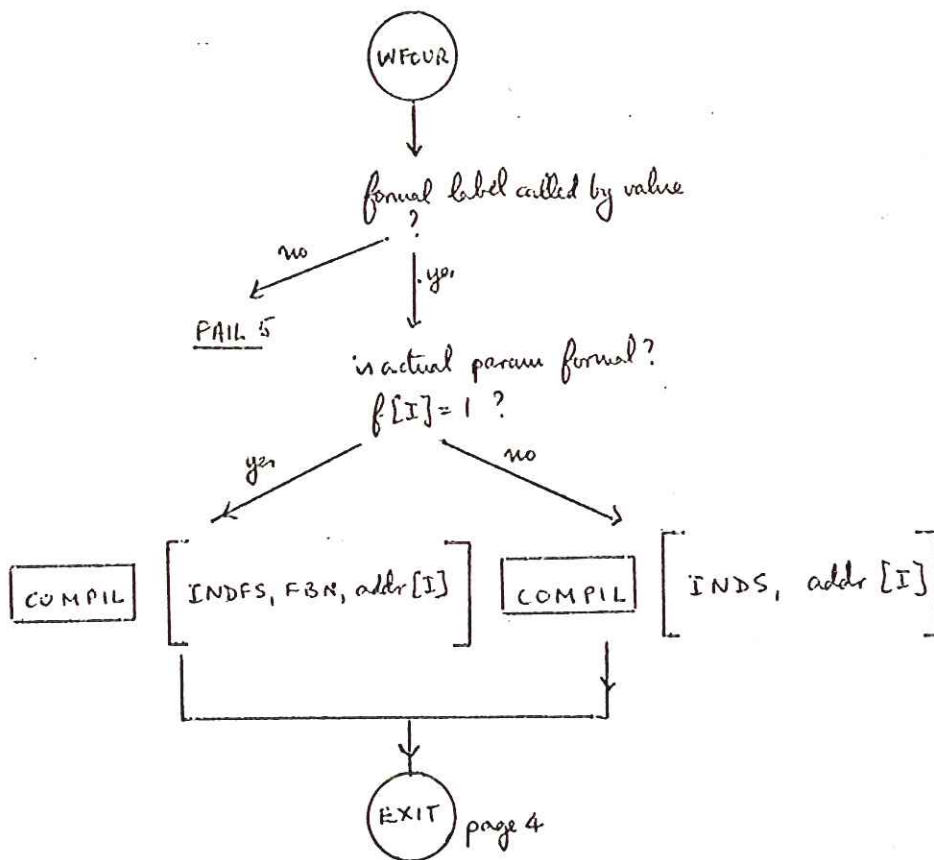 WFCUR
formal label called by value
?
no
yes
FAIL 5
is actual param formal?
f[I] = 1 ?
yes
no
COMPIL
INDFS, FBN, addr [I]
COMPIL
INDS, addr [I]
EXIT
page 4